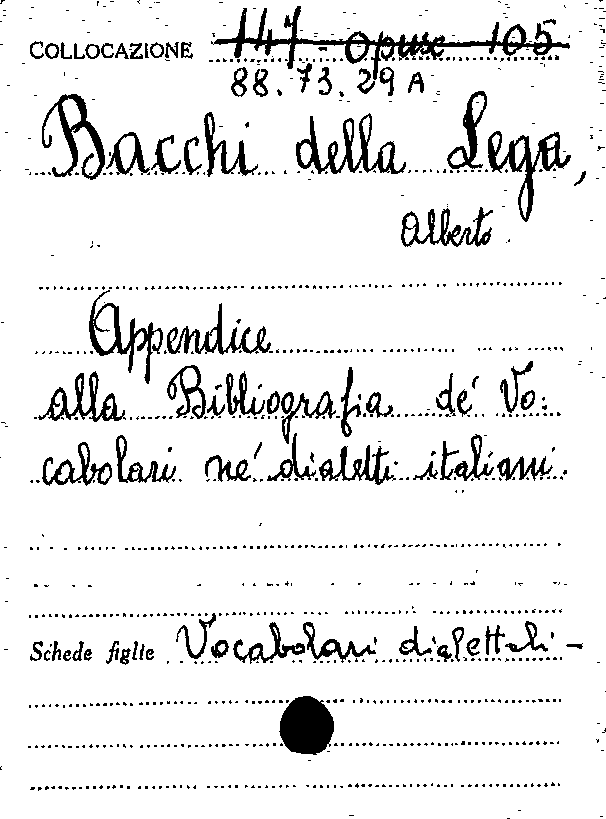 COLLOCAZIONE 147 - Opusc 105
88.73.29 A
Bacchi della Lega,
Alberto
Appendice
alla Bibliografia de' Vo:
cabolari ne' dialetti italiani.
Schede figlie Vocabolari dialettali -